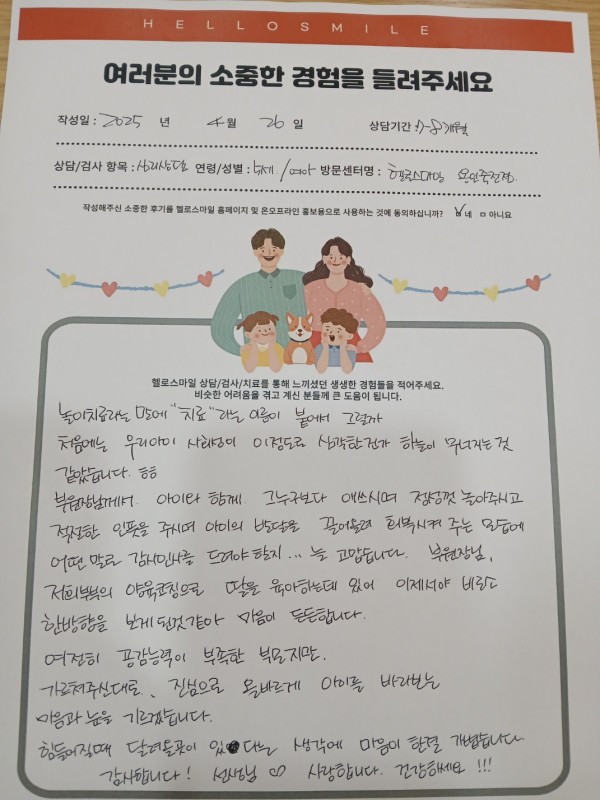 HELLOSMILE
여러분의 소중한 경험을 들려주세요
작성일 : 2025 년 4월 26일 상담기간 : 7-8개월
상담/검사 항목 : 심리상담 연령/성별 : 5세 / 여아 방문센터명 : 헬로스마일 용인죽전점.
작성해주신 소중한 후기를 헬로스마일 홈페이지 및 온오프라인 홍보용으로 사용하는 것에 동의하십니까? ☑ 네 ㅁ 아니요
헬로스마일 상담/검사/치료를 통해 느끼셨던 생생한 경험들을 적어주세요.
비슷한 어려움을 겪고 계신 분들께 큰 도움이 됩니다.
놀이치료라는 말에 "치료"라는 이름이 붙어서 그럴까
처음에는 우리아이 사회성이 이정도로 심각한건가 하늘이 무너지는 것
같았습니다. ㅎㅎ
부원장님께서 아이와 함께 그누구보다 애쓰시며 정성껏 놀아주시고
적절한 인풋을 주시며 아이의 발달을 끌어올려 회복시켜 주는 모습에
어떤 말로 감사인사를 드려야 할지... 늘 고맙습니다. 부원장님,
저희부부의 양육코칭으로 딸을 육아하는데 있어 이제서야 비로소
한방향을 보게 된것 같아 마음이 든든합니다.
여전히 공감능력이 부족한 부모지만.
가르쳐주신대로, 진심으로 올바르게 아이를 바라보는
마음과 눈을 기르겠습니다.
힘들어질때 달려올곳이 있다는 생각에 마음이 한결 가볍습니다.
감사합니다! 선생님 ♡ 사랑합니다. 건강하세요!!!